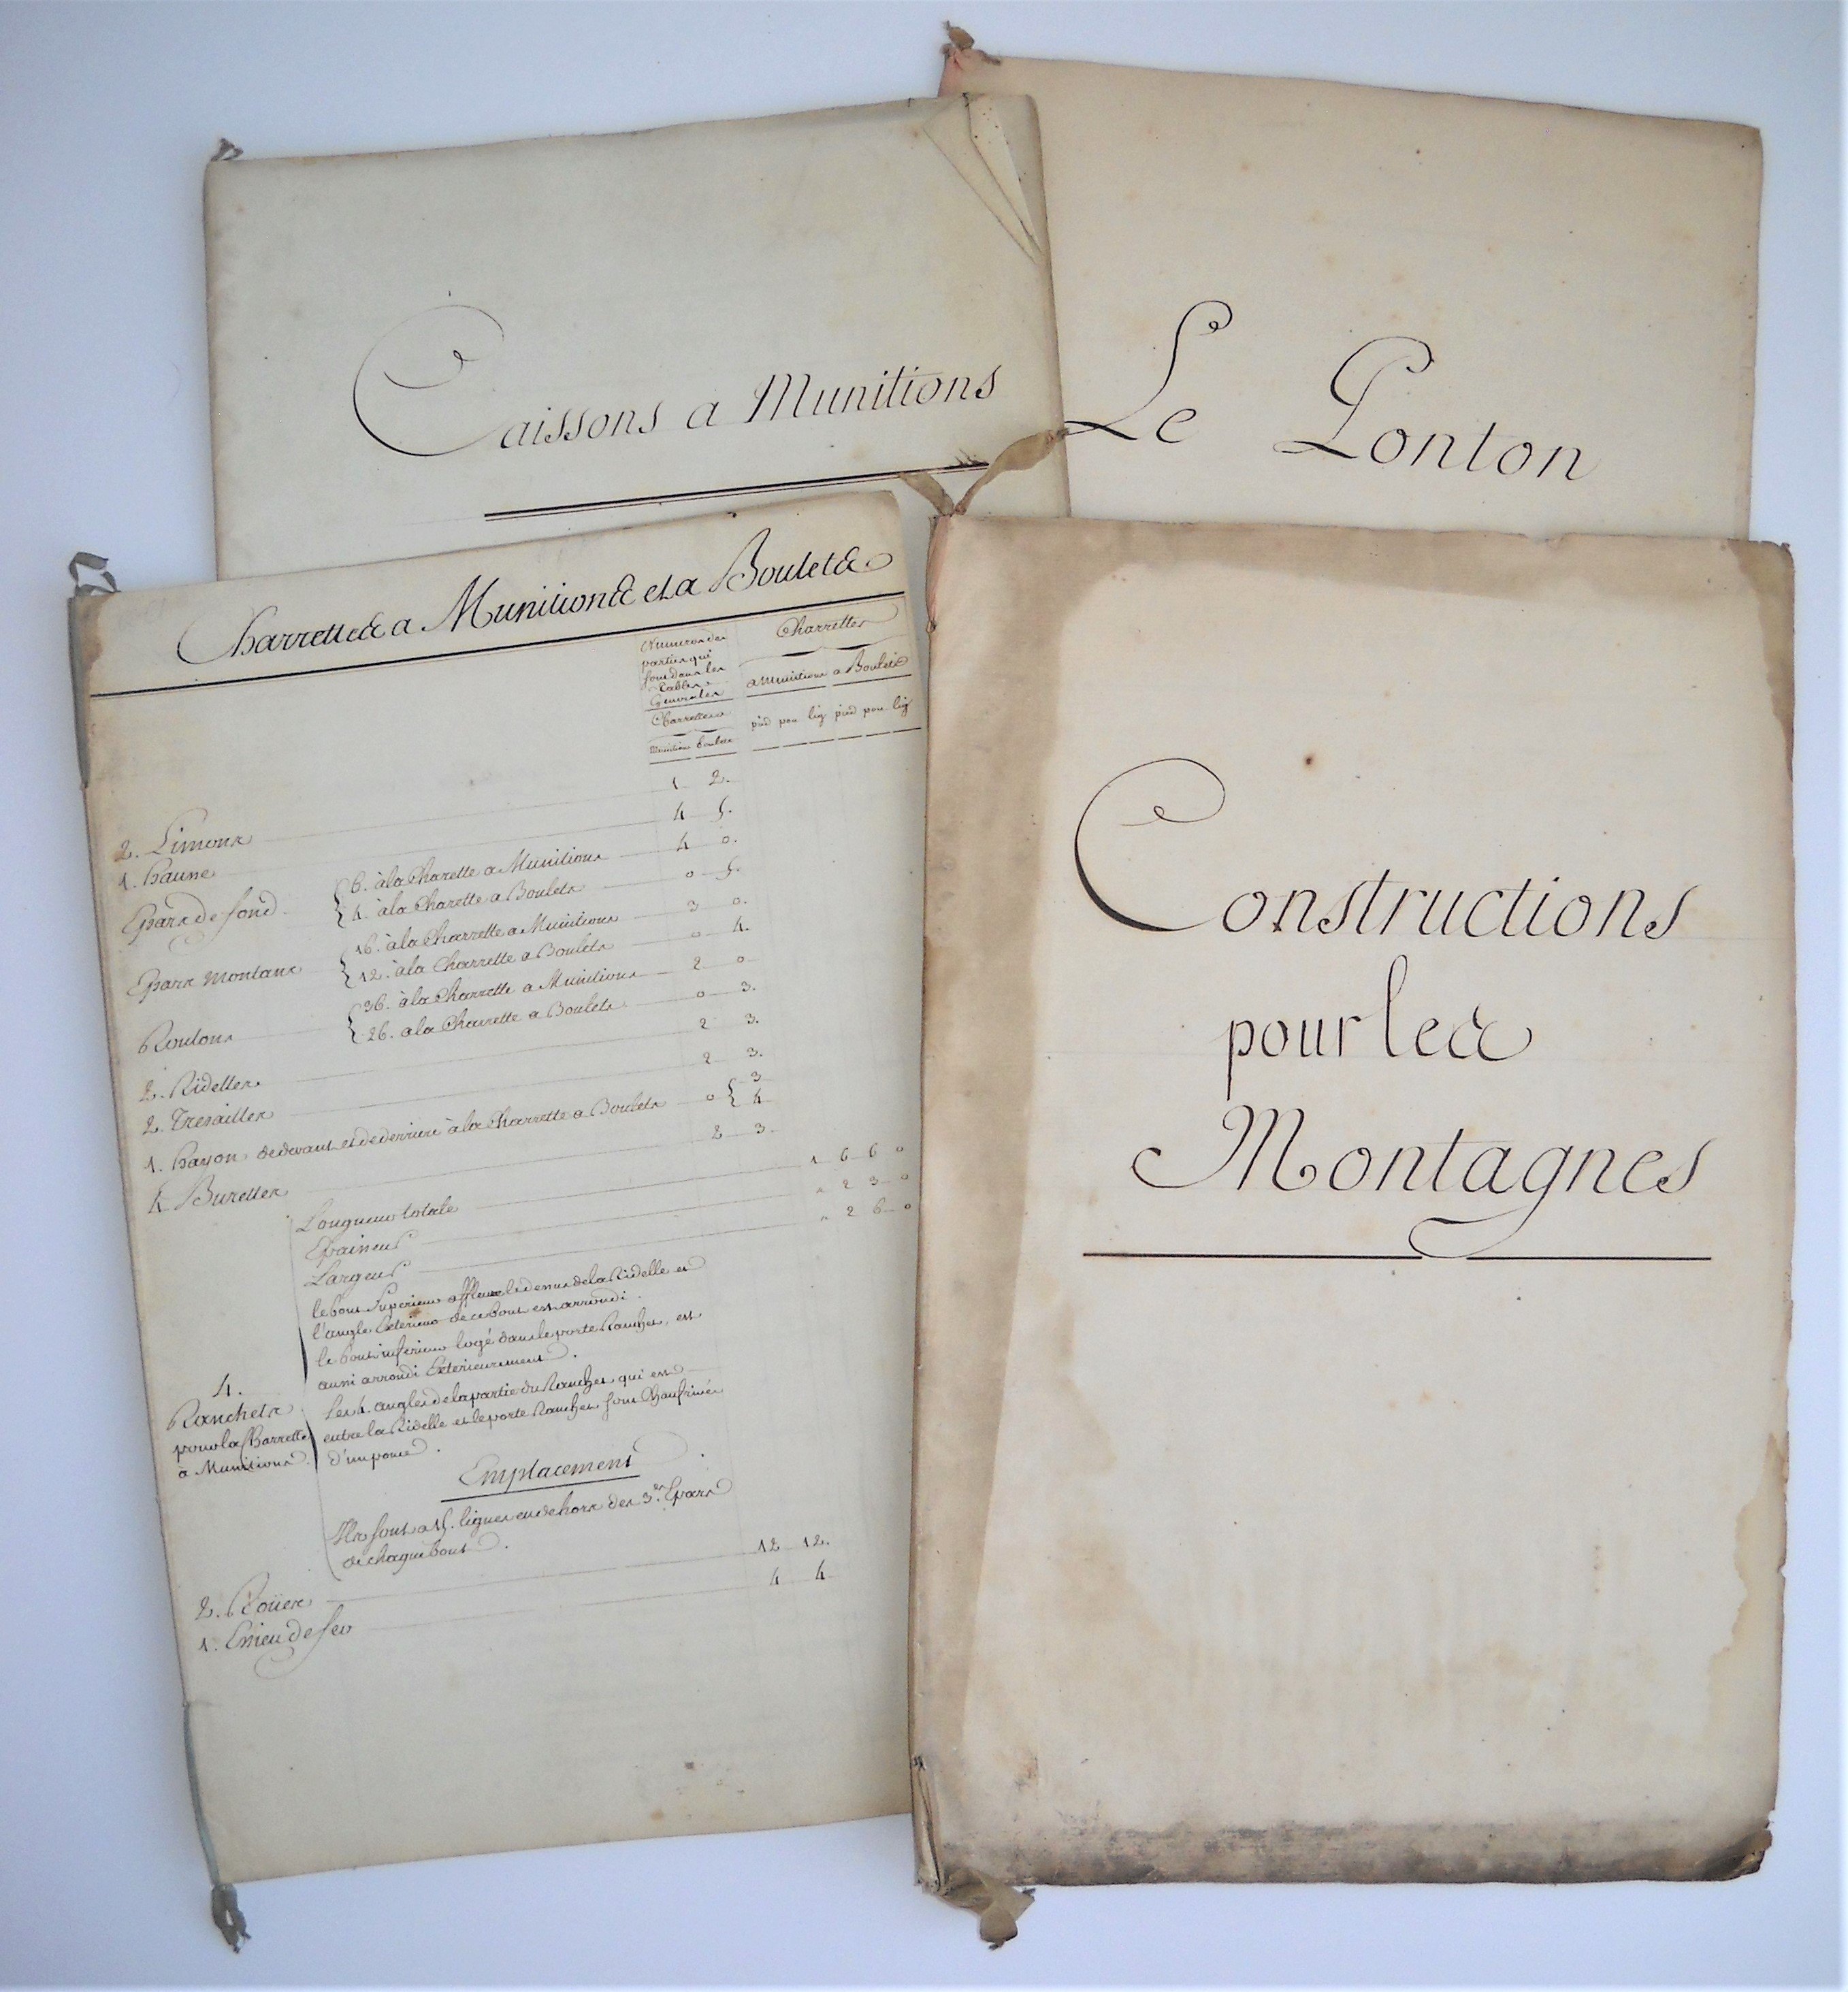 Caissons a Munitions
Le Ponton
Charrettes a Munitions et a Boulets
Numeros des
parties qui
sont dans les
Tables
Generales
Charrettes
a Munitions a Boulets
Charrettes
Munitions boulets
pied pou lig pied pou lig
2. Limons 1 2.
1. haune 4 5.
Epars de fond { 6. à la Charette a Munitions 4 0.
4. à la Charette a Boulets 0 5.
Epars Montans { 16. à la Charrette a Munitions 3 0.
12. à la Charrette a Boulets 0 4.
Roulons { 36. à la Charrette a Munitions 2 0
26. a la Charette a Boulets 0 3.
2. Ridelles 2 3.
2. Tresailles 2 3.
1. hayon de devant et de derriere à la Charrette a Boulets 0 { 3
4
4 Burettes 2 3.
4.
Ranchets
pour la Charrette
à Munitions
Longueur totale 1 6 6 0
Epaisseur " 2 3 0
Largeur " 2 6 0
le bout Superieur affleure le dessus de la Ridelle et
l'angle Exterieur de ce bout est arrondi.
le bout inferieur logé dans le porte Ranchet, est
aussi arrondi Exterieurement.
Les 4. angles de la partie du Ranchet qui est
entre la Ridelle et le porte Ranchet sont Chanfrinés
d'un pouce.
Emplacement
Ils sont a 15. lignes en dehors des 3.es Epars
de chaque bout.
2. Roües 12 12.
1. Essieu de fer 4 4
Constructions
pour les
Montagnes